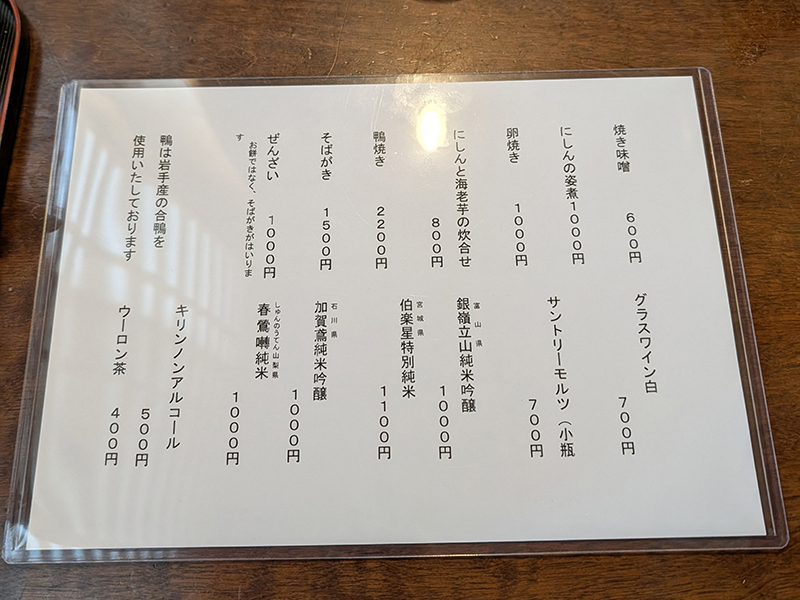 焼き味噌 600円
にしんの姿煮1000円
卵焼き 1000円
にしんと海老芋の炊合せ
800円
鴨焼き 2200円
そばがき 1500円
ぜんざい 1000円
お餅ではなく、そばがきがはいりま
す
鴨は岩手産の合鴨を
使用いたしております
グラスワイン白
700円
サントリーモルツ（小瓶
700円
富山県
銀嶺立山純米吟醸
1000円
宮城県
伯楽星特別純米
1100円
石川県
加賀鳶純米吟醸
1000円
しゅんのうてん山梨県
春鶯囀純米
1000円
キリンノンアルコール
500円
ウーロン茶 400円